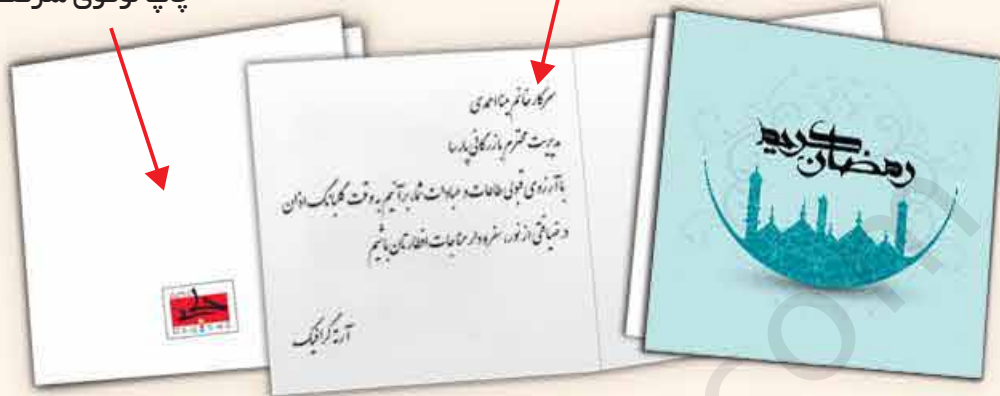 چاپ لوگوی شرکت
سرکار خانم مینا احمدی
مدیریت محترم بازرگانی پارسا
با آرزوی قبولی طاعات و عبادات شما برآنیم به وقت گلبانگ اذان
در ضیافتی از نور، سفره دار مناجات افطارتان باشیم
آرته گرافیک
رمضان کریم
com